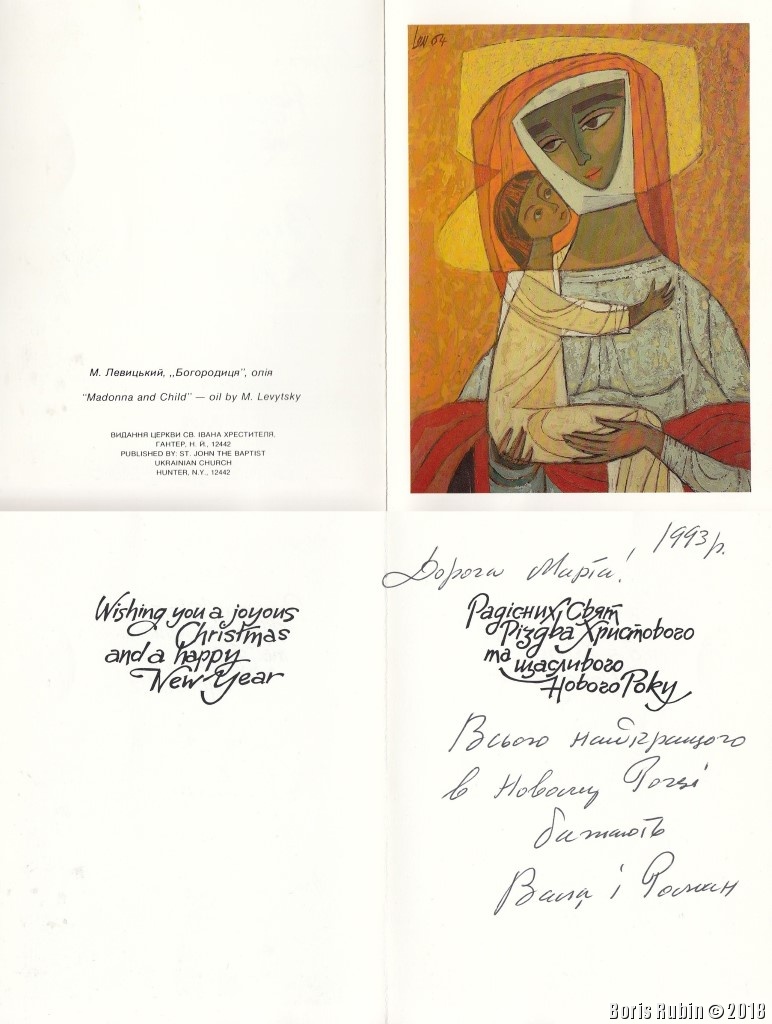 Lew 64
М. Левицький, ,,Богородиця", олія
"Madonna and Child" — oil by M. Levytsky
ВИДАННЯ ЦЕРКВИ СВ. ІВАНА ХРЕСТИТЕЛЯ,
ГАНТЕР, Н. Й., 12442
PUBLISHED BY: ST. JOHN THE BAPTIST
UKRAINIAN CHURCH
HUNTER, N.Y., 12442
Wishing you a joyous
Christmas
and a happy
New Year
1993 р.
Дорога Марта!
Радісних Свят
Різдва Христового
та щасливого
Нового Року
Всього найкращого
в Новому Році
бажають
і Роман
Boris Rubin © 2018